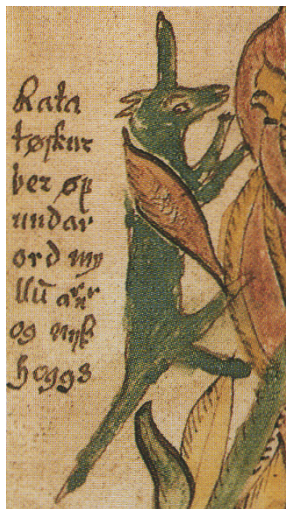 Rata
tøskur
ber øf
undar
ord my
llū arnar
og nyk
hoggs